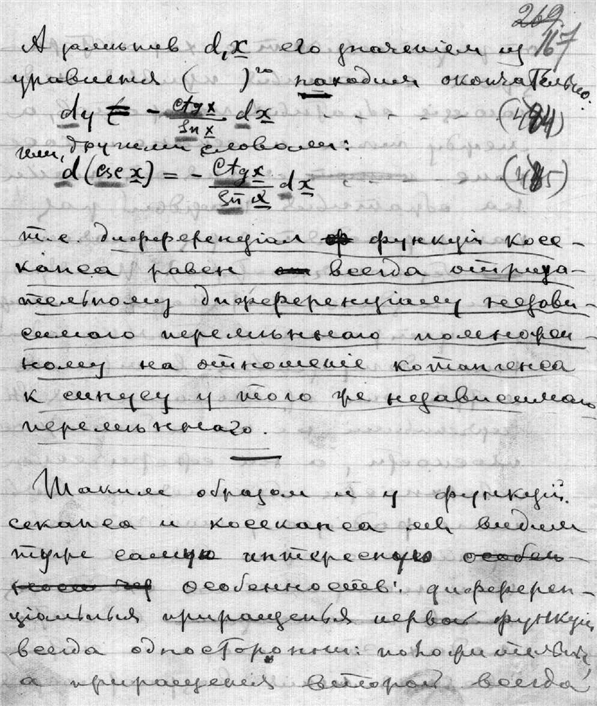 269.
167
А замѣнивъ d₁x его значеніем из
уравненія ( )го находим окончательно:
dy = - ctgx/Sn x dx (484)
или, другими словами:
d(csc x) = - Ctgx/Sn x dx (485)
т.е. дифференціал функціи косе-
канса равен всегда отрица-
тельному диференціалу незави-
симаго перемѣннаго помножен-
ному на отношеніе котангенса
к синусу у того же независимаго
перемѣннаго.
Таким образом и у функцій
секанса и косеканса мы видим
туже самую интересную особен-
ность особенность: диферен-
ціальныя приращенья первой функціи
всегда односторонни: положительны,
а приращенія второй всегда